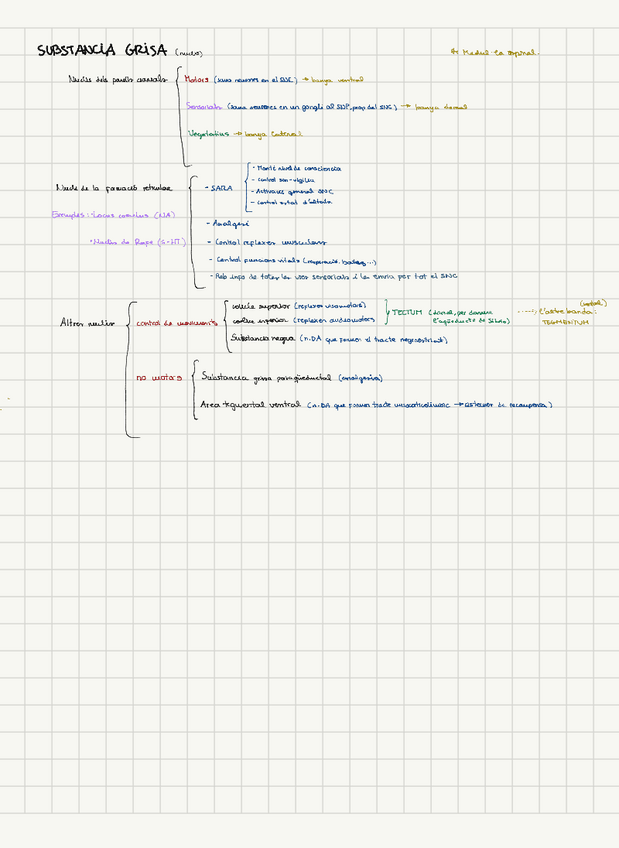 SUBSTÀNCIA GRISA (nuclis)
Medul·la espinal.
Nuclis dels parells cranials
Motors (soma neurones en el SNC) → banya ventral
Sensorials (soma neurones en un gangli al SNP, prop del SNC) → banya dorsal
Vegetatius → banya lateral
Nuclis de la formació reticular
Exemples: · Locus coeruleus (NA)
· Nuclis de Rafe (5-HT)
- SARA
- Manté nivell de consciencia
- control son-vigília
- Activació general SNC
- control estat d'
- Analgesi
- Control reflexes musculars
- Control funcions vitals (respiració, ...)
- Reb info de totes les vies sensorials i les envia per tot el SNC
Altres nuclis
control de moviments
col·licle superior (reflexes visomotors)
col·licle inferior (reflexes audiomotors
Substància negra (n.DA que formen el tracte negroestriat)
TECTUM (dorsal, per darrere
l'aqüeducte de Silvio)
(ventral)
L'altre banda:
TEGMENTUM
no motors
Substancia grisa periaqüeductal (analgesia)
Area tegmental ventral (n.DA que formen tracte mesocorticolímbic → sistema de recompensa)